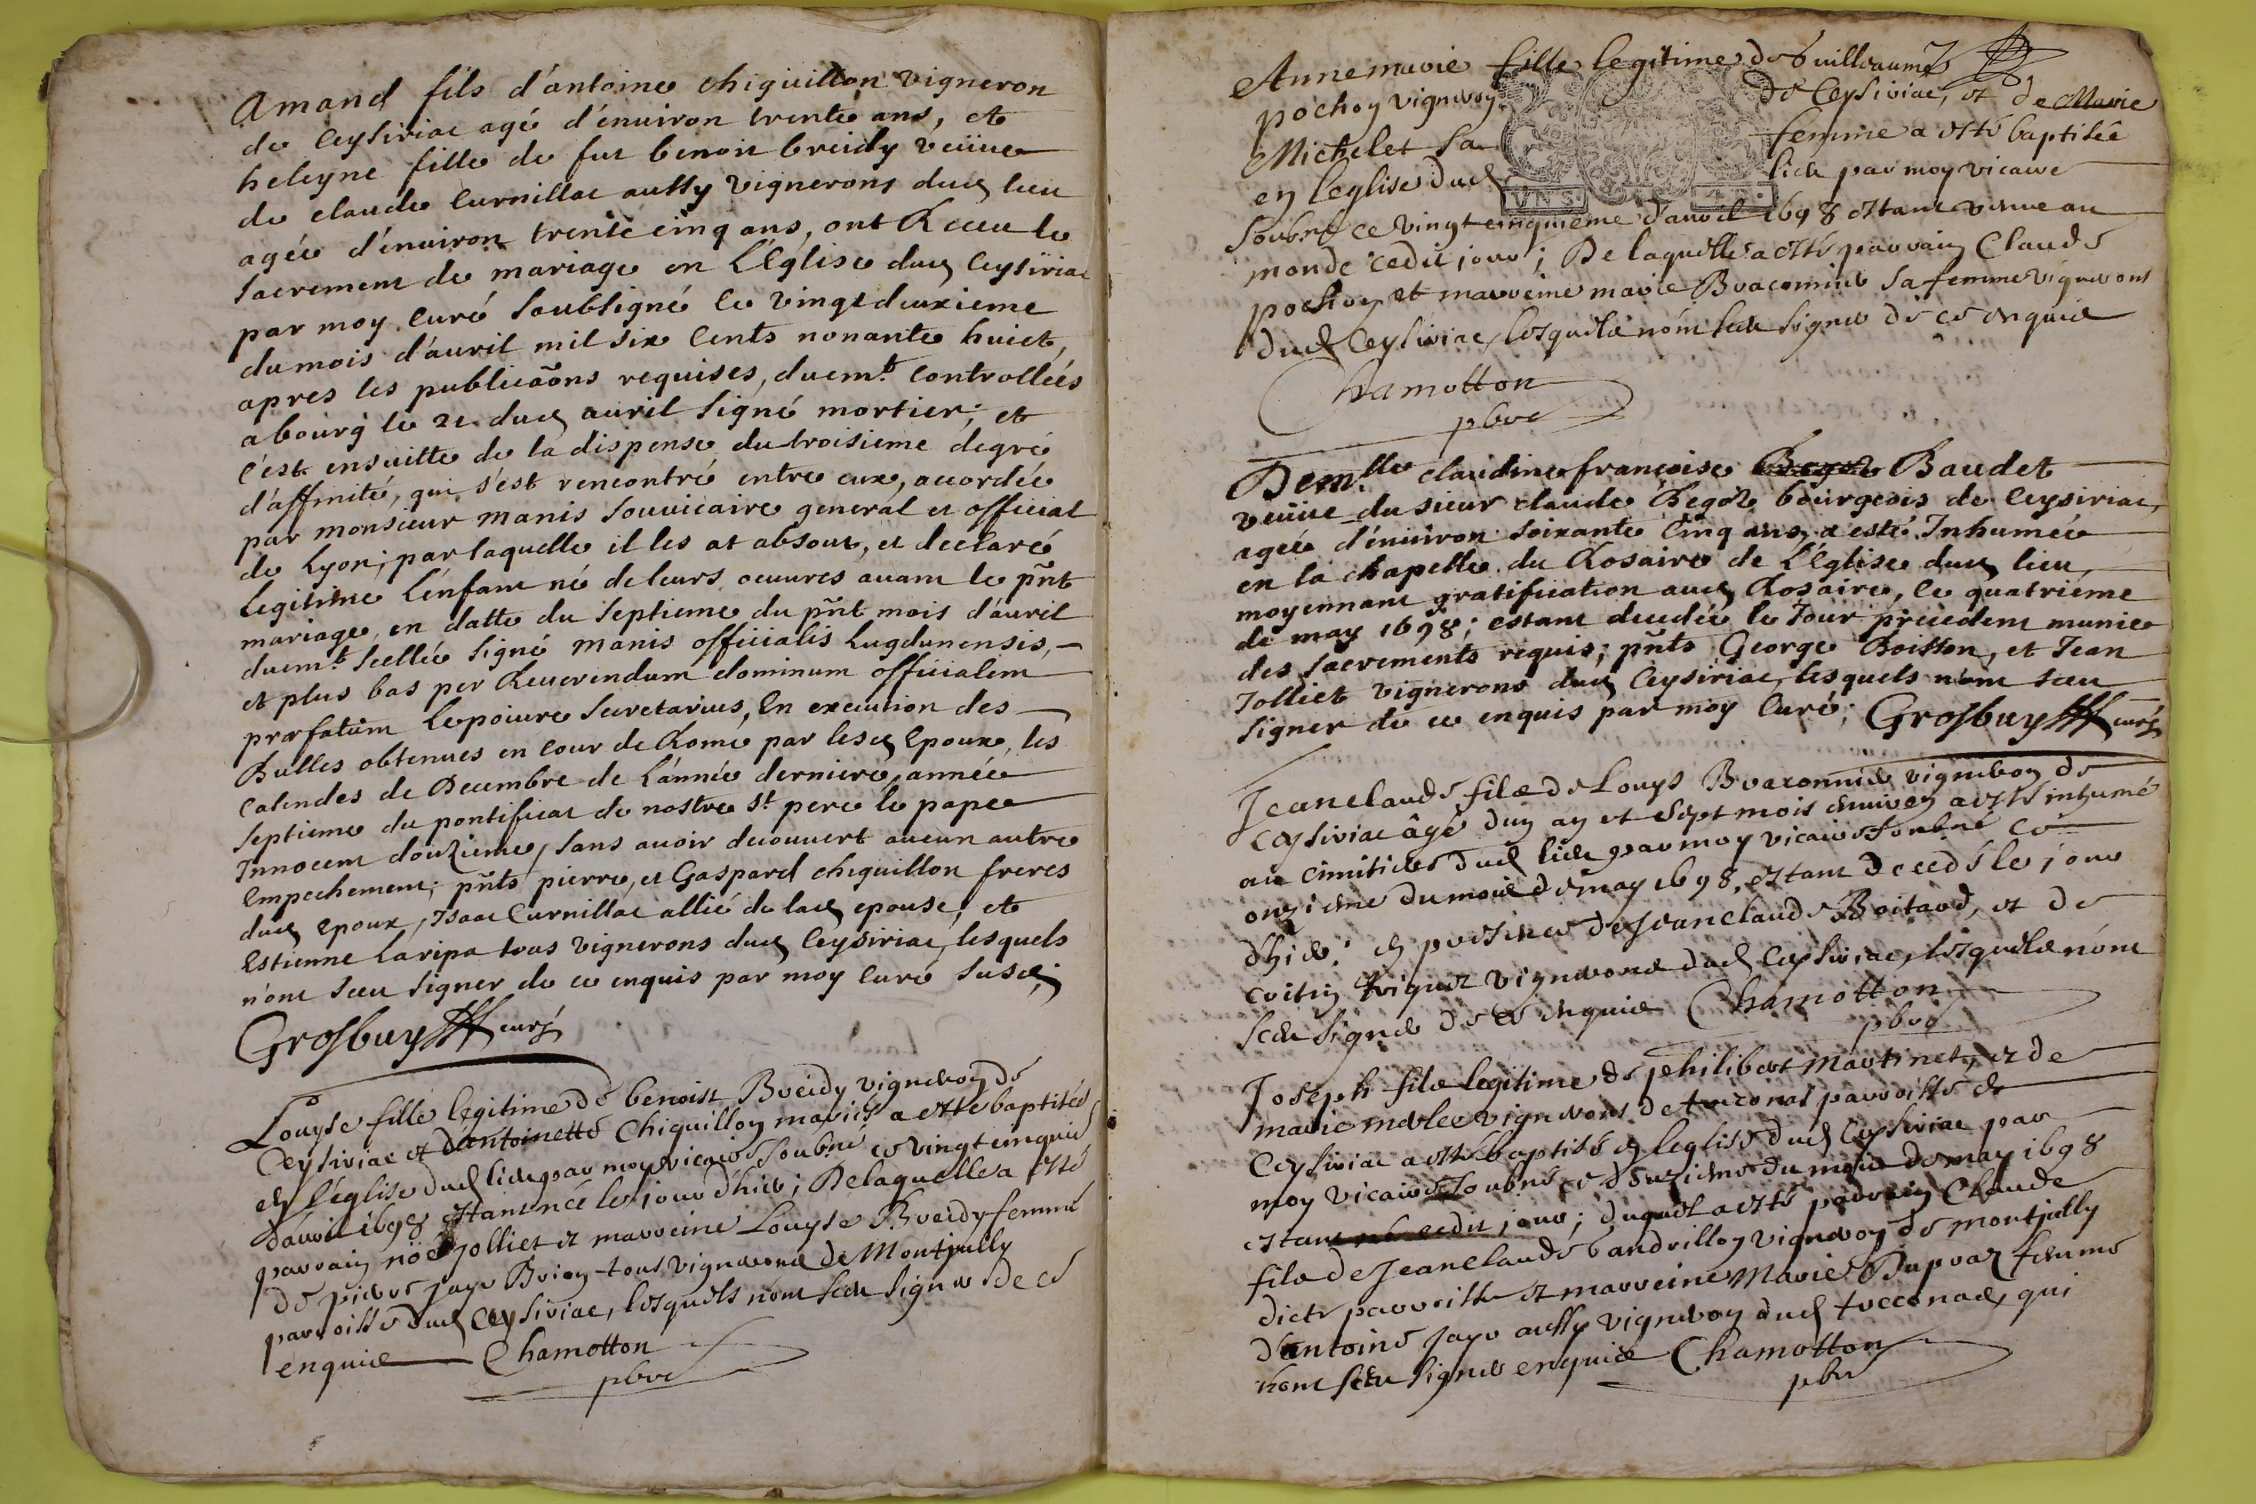 Amand fils d'antoine chiquillon vigneron
de Ceysiriac agé d'enuiron trente ans, et
heleyne fille de fut benoit breidy veüue
de claude Curnillac aussy vignerons dud lieu
agée d'enuiron trente cinq ans, ont Receu le
sacrement de mariage en L'Eglise dud Ceysiriac
par moy curé soubsigné le vingt deuxieme
du mois d'auril mil six Cents nonante huict,
apres les publicaõns requises, duemt controllées
a bourg le 21 dud auril signé mortier; et
c'est ensuitte de la dispense du troisieme degré
d'affinité, qui s'est rencontré entre eux, accordée
par monsieur manis souuicaire general et official
de Lyon; par laquelle il les at absout, et declaré
Legitime L'enfant né de leurs oeuures auant le pñt
mariage, en datte du septieme du pñt mois d'auril
duemt scellée signé manis officialis Lugdunensis,
et plus bas per Reuerendum dominum officialem
præfatum Lepoiure secretarius, En execution des
Bulles obtenues en Cour de Rome par lesd Epoux, les
Calendes de Decembre de L'année derniere, année
septieme du pontificat de nostre st pere le pape
Innocent douzieme, sans auoir decouuert aucun autre
Empechement; pñts pierre, et Gaspard chiquillon freres
dud Epoux, Isaac Curnillac allié de lad epouse, et
Estienne Laripa tous vignerons dud Ceysiriac, lesquels
n'ont sceu signer de ce enquis par moy Curé susd;
Grosbuy curé
Louyse fille legitime de benoist Breidy vigneron de
Ceysiriac et d'antoinette Chiquillon mariés a esté baptisée
en l'église dud lieu par moy vicaire soubné ce vingt cinquie
d'avril 1698 estant née le jour d'hier; De laquelle a esté
parrain nöe jolliet et marreine Louyse Breidy femme
de pierre jayr Brion tous vignerons de Montjully
parroisse dud Ceysiriac, lesquels n'ont sceu signer de ce
enquis Chamotton
pbre
Anne marie fille legitime de Guilleaume
pochon vigneron de Ceysiriac, et de Marie
Michelet sa femme a esté baptisée
en l'eglise dud lieu par moy vicaire
VN S. 4 D.
soubné ce vingt cinquieme d'avril 1698 estant venue au
monde cedit jour; De laquelle a esté parrain Claude
pochon et marreine marie Bracconnier sa femme vignerons
dud Ceysiriac, lesquels n'ont sceu signer de ce enquis
Chamotton
pbre
Demlle claudine françoise Baudet
veüue du sieur claude Regoz bourgeois de Ceysiriac,
agée d'enuiron soixante Cinq ans, a esté Inhumée
en la chapelle du Rosaire de L'Eglise dud lieu,
moyennant gratification aud Rosaire, le quatrieme
de may 1698; estant decedée le Jour precedent munie
des sacrements requis; pñts George Boisson, et Jean
Jolliet vignerons dud Ceysiriac, lesquels n'ont sceu
signer de ce enquis par moy Curé; Grosbuy curé
Jean claude fils de Louys Braconnier vigneron de
Ceysiriac âgé d'un an et sept mois enuiron a esté inhumé
au cimitiere dud lieu par moy vicaire soubné ce
onzieme du mois de may 1698, estant decedé le jour
d'hier: en presence de Jean claude Boitard, et de
vignerons dud Ceysiriac, lesquels n'ont
sceu signer de ce enquis Chamotton
pbre
Joseph fils legitime de philibert Martinet, et de
marie merle vignerons de parroisse de
Ceysiriac a esté baptisé en l'eglise dud Ceysiriac par
moy vicaire soubné ce douzieme du mois de may 1698
estant né cedit jour; duquel a esté parrain Claude
fils de Jean claude Gandrillon vigneron de montjully
dicte parroisse et marreine Marie Dupraz femme
d'antoine Jayr aussy vigneron dud qui
n'ont sceu signer enquis Chamotton
pbre